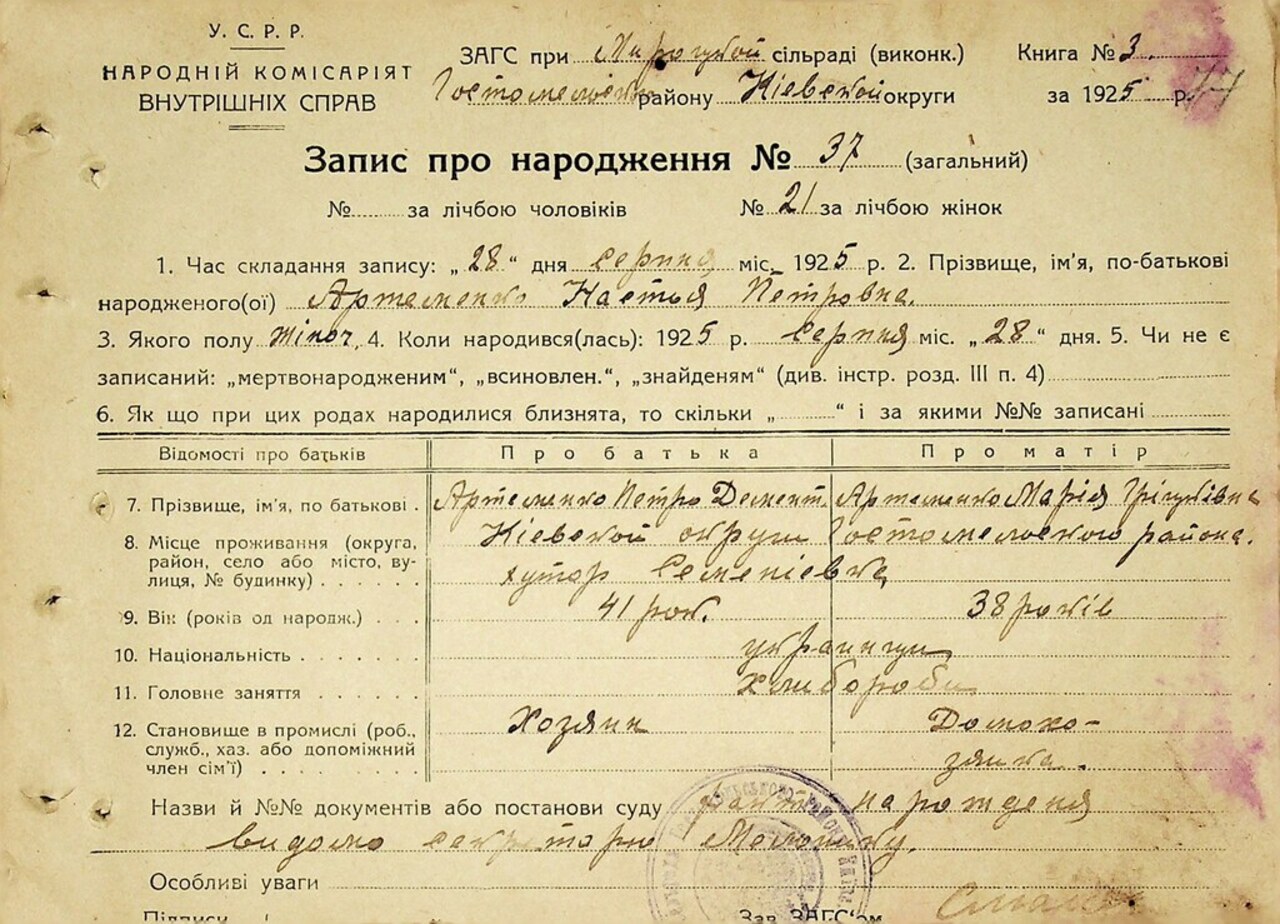 У. С. Р. Р.
НАРОДНІЙ КОМІСАРІЯТ
ВНУТРІШНІХ СПРАВ
ЗАГС при Мироцкой сільраді (виконк.)
Гостомельск району Кіевской округи
Книга № 3.
за 1925 р.
Запис про народження № 37 (загальний)
№ за лічбою чоловіків № 21 за лічбою жінок
1. Час складання запису: „28“ дня серпня міс. 1925 р. 2. Прізвище, ім’я, по-батькові
народженого(ої) Артеменко Настья Петровна.
3. Якого полу жіноч. 4. Коли народився(лась): 1925 р. серпня міс. „28“ дня. 5. Чи не є
записаний: „мертвонародженим“, „всиновлен.“, „знайденям“ (див. інстр. розд. III п. 4)
6. Як що при цих родах народилися близнята, то скільки „ “ і за якими №№ записані
Відомості про батьків Про батька Про матір
7. Прізвище, ім’я, по батькові . Артеменко Петро Демент. Артеменко Марія
8. Місце проживання (округа, Кіевской округи Гостомельского района.
район, село або місто, ву-
лиця, № будинку) . . . . хутор Семеніевка
9. Вік (років од народж.) . . . 41 рок. 38 років
10. Національність . . . . . . . украинци
11. Головне заняття . . . . . . хлибороби
12. Становище в промислі (роб., Хозяин Домохо-
служб., хаз. або допоміжний
член сім’ї) . . . . . . . . зяика.
Назви й №№ документів або постанови суду факт на рожденя
видомо секретарю
Особливі уваги
Підписи
Зав. ЗАГС’ом